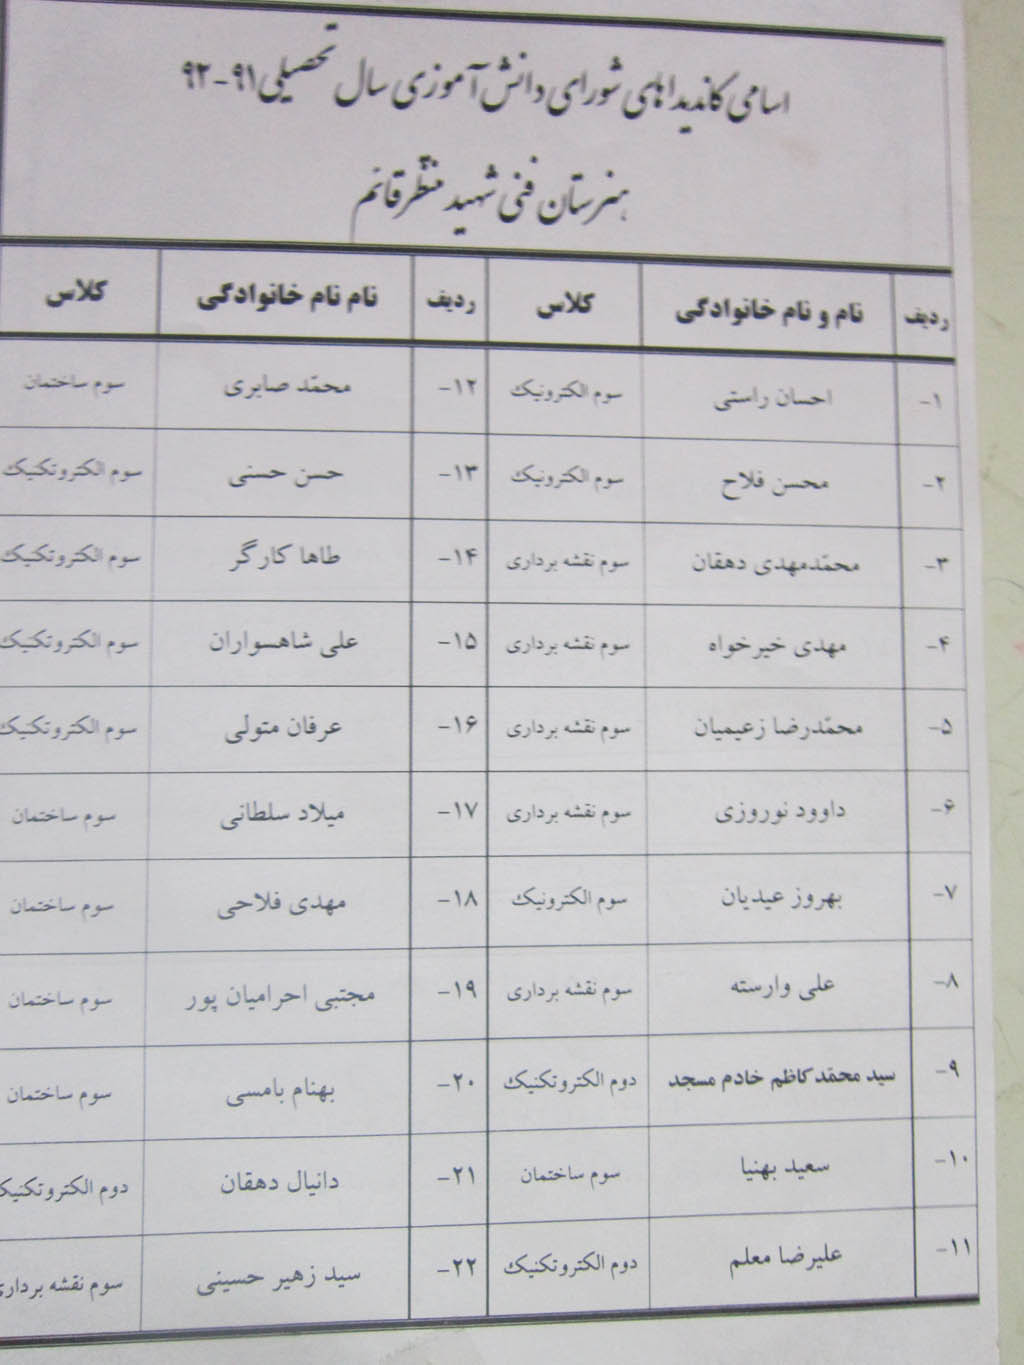 اسامی کاندیداهای شورای دانش آموزی سال تحصیلی ۹۱-۹۲
هنرستان فنی شهید منتظر قائم
ردیف نام و نام خانوادگی کلاس ردیف نام نام خانوادگی کلاس
۱- احسان راستی سوم الکترونیک ۱۲- محمّد صابری سوم ساختمان
۲- محسن فلاح سوم الکترونیک ۱۳- حسن حسنی سوم الکتروتکنیک
۳- محمّدمهدی دهقان سوم نقشه برداری ۱۴- طاها کارگر سوم الکتروتکنیک
۴- مهدی خیرخواه سوم نقشه برداری ۱۵- علی شاهسواران سوم الکتروتکنیک
۵- محمّدرضا زعیمیان سوم نقشه برداری ۱۶- عرفان متولی سوم الکتروتکنیک
۶- داوود نوروزی سوم نقشه برداری ۱۷- میلاد سلطانی سوم ساختمان
۷- بهروز عیدیان سوم الکترونیک ۱۸- مهدی فلاحی سوم ساختمان
۸- علی وارسته سوم نقشه برداری ۱۹- مجتبی احرامیان پور سوم ساختمان
۹- سید محمّدکاظم خادم مسجد دوم الکتروتکنیک ۲۰- بهنام بامسی سوم ساختمان
۱۰- سعید بهنیا سوم ساختمان ۲۱- دانیال دهقان دوم الکتروتکنیک
۱۱- علیرضا معلم دوم الکتروتکنیک ۲۲- سید زهیر حسینی سوم نقشه برداری